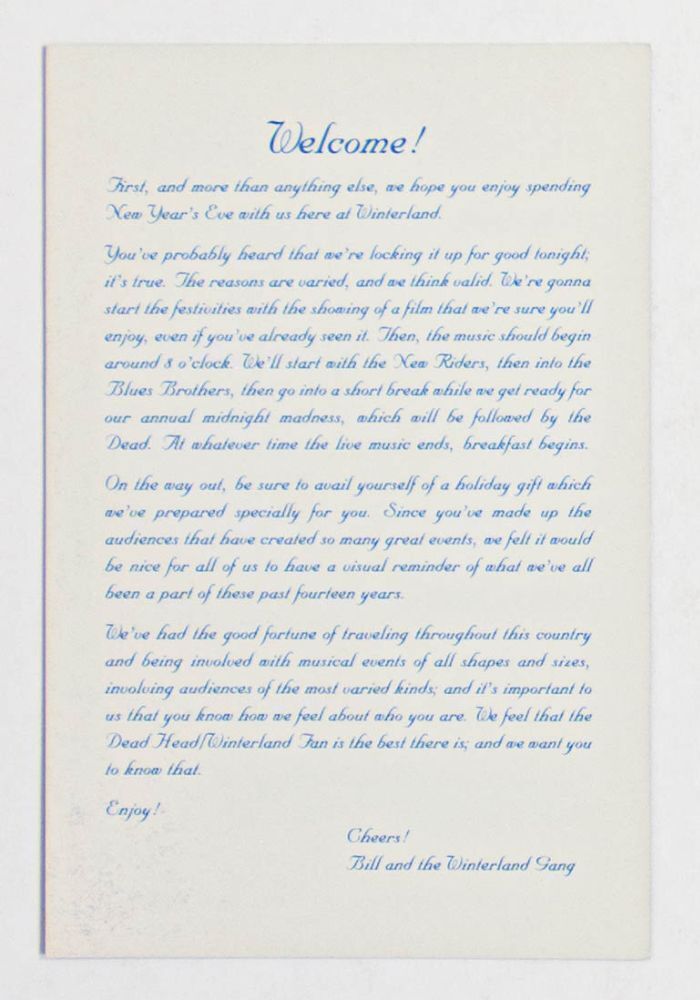 Welcome!
First, and more than anything else, we hope you enjoy spending
New Year's Eve with us here at Winterland.
You've probably heard that we're locking it up for good tonight;
it's true. The reasons are varied, and we think valid. We're gonna
start the festivities with the showing of a film that we're sure you'll
enjoy, even if you've already seen it. Then, the music should begin
around 8 o'clock. We'll start with the New Riders, then into the
Blues Brothers, then go into a short break while we get ready for
our annual midnight madness, which will be followed by the
Dead. At whatever time the live music ends, breakfast begins.
On the way out, be sure to avail yourself of a holiday gift which
we've prepared specially for you. Since you've made up the
audiences that have created so many great events, we felt it would
be nice for all of us to have a visual reminder of what we've all
been a part of these past fourteen years.
We've had the good fortune of traveling throughout this country
and being involved with musical events of all shapes and sizes,
involving audiences of the most varied kinds; and it's important to
us that you know how we feel about who you are. We feel that the
Dead Head/Winterland Fan is the best there is; and we want you
to know that.
Enjoy!
Cheers!
Bill and the Winterland Gang